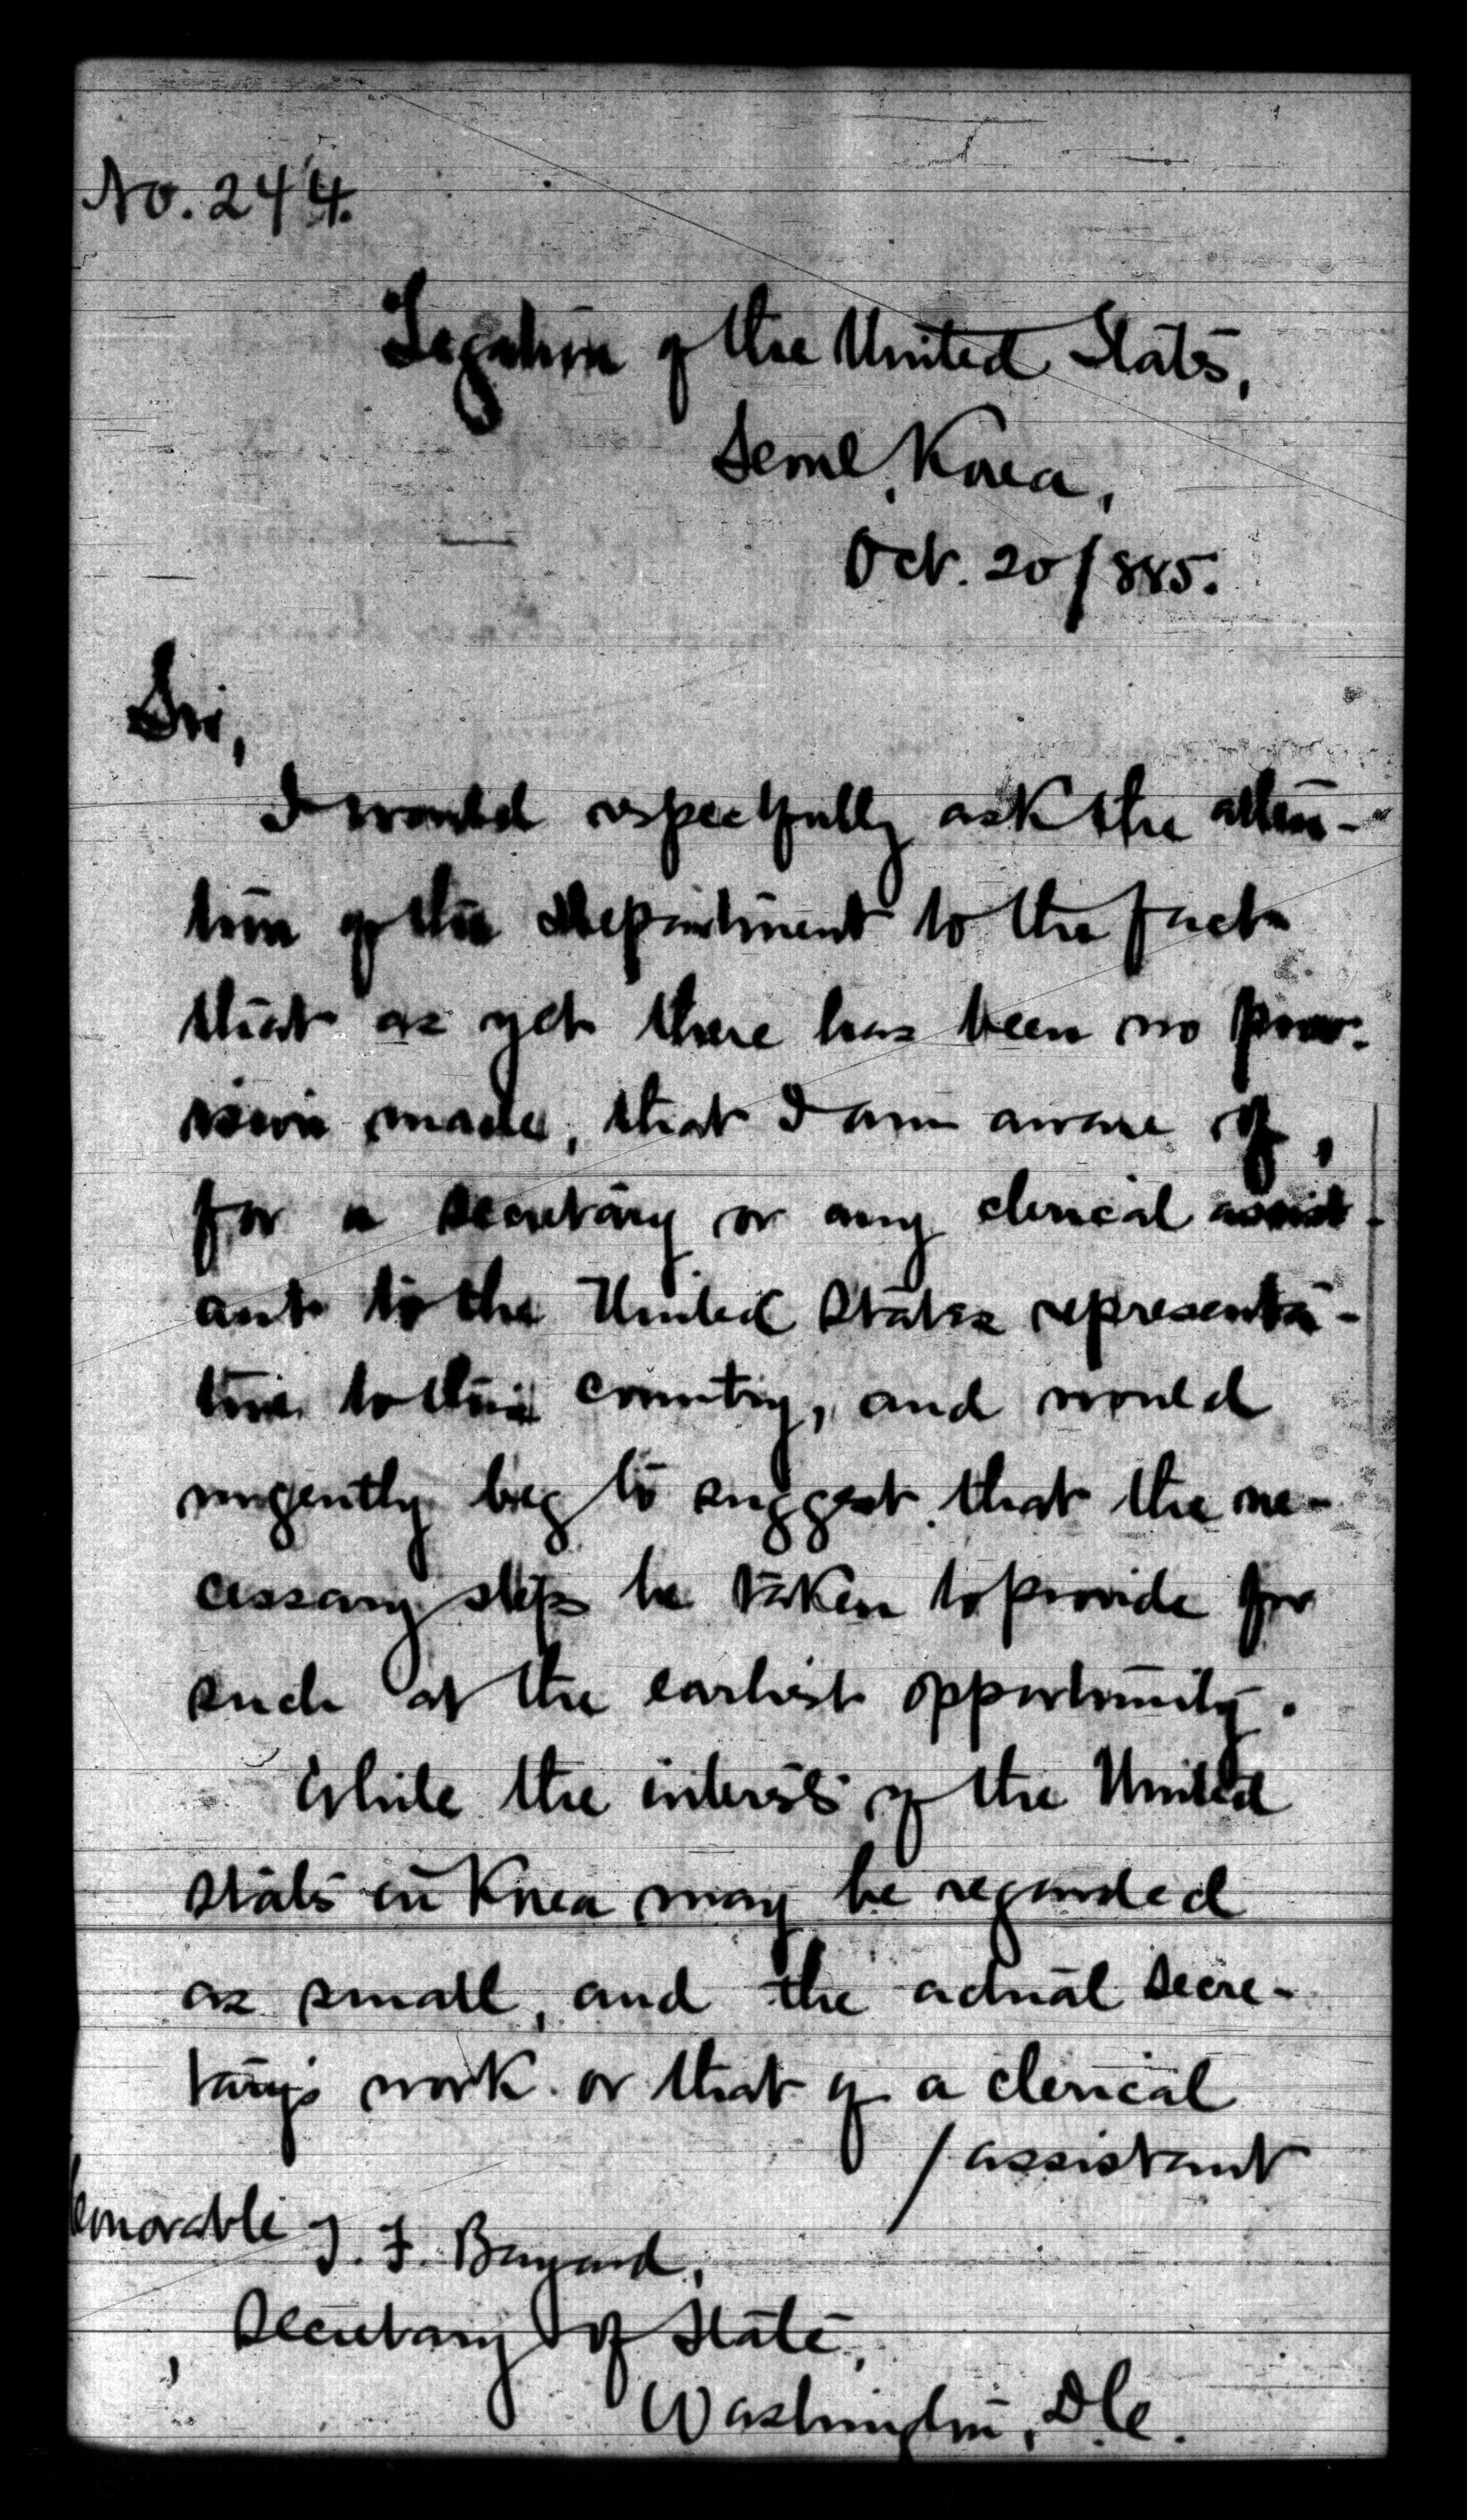 No. 244.
Legation of the United States,
Seoul, Korea,
Oct. 20/885.
Sir,
I would respectfully ask the atten-
tion of the Department to the fact
that as yet there has been no prov-
ision made, that I am aware of,
for a secretary or any clerical assist-
ant to the United States representa-
tive to this country, and would
urgently beg to suggest that the ne-
cessary steps be taken to provide for
such at the earliest opportunity.
While the interests of the United
States in Korea may be regarded
as small, and the actual secre-
tary's work or that of a clerical
/assistant
Honorable T. F. Bayard,
Secretary of State,
Washington, D.C.